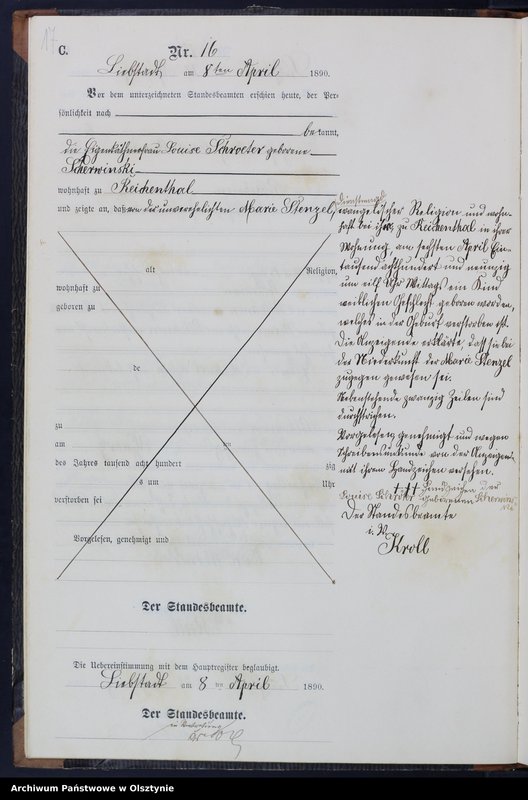 17
C.
Nr. 16
Liebstadt am 8ten April 1890.
Vor dem unterzeichneten Standesbeamten erschien heute, der Per-
sönlichkeit nach
bekannt,
die Eigenkäthnerfrau Louise Schroeter geborene
Scherwinski
wohnhaft zu Reichenthal
und zeigte an, daß von der unverehelichten Marie Stenzel,
Dienstmagd
evangelischer Religion und wohn-
haft bei ihr, zu Reichenthal in ihrer
Wohnung, am sechsten April Ein-
tausend achthundert und neunzig
um elf Uhr Mittags ein Kind
weiblichen Geschlechts geboren worden,
welches in der Geburt verstorben ist.
Die Anzeigende erklärte, dass sie bei
der Niederkunft der Marie Stenzel
zugegen gewesen sei.
Nebenstehende zwanzig Zeilen sind
durchstrichen.
Vorgelesen, genehmigt und wegen
Schreibensunkunde von der Anzeigen-
den mit ihrem Handzeichen versehen.
+++ Handzeichen der
Louise Schröter geborenen Scherwinski
Der Standesbeamte
i. V.
Kroll
alt
Religion,
wohnhaft zu
geboren zu
de
zu
am ten
des Jahres tausend acht hundert zig
s um Uhr
verstorben sei
Vorgelesen, genehmigt und
Der Standesbeamte.
Die Uebereinstimmung mit dem Hauptregister beglaubigt.
Liebstadt am 8 ten April 1890.
Der Standesbeamte.
in Vertretung
Kroll
Archiwum Państwowe w Olsztynie